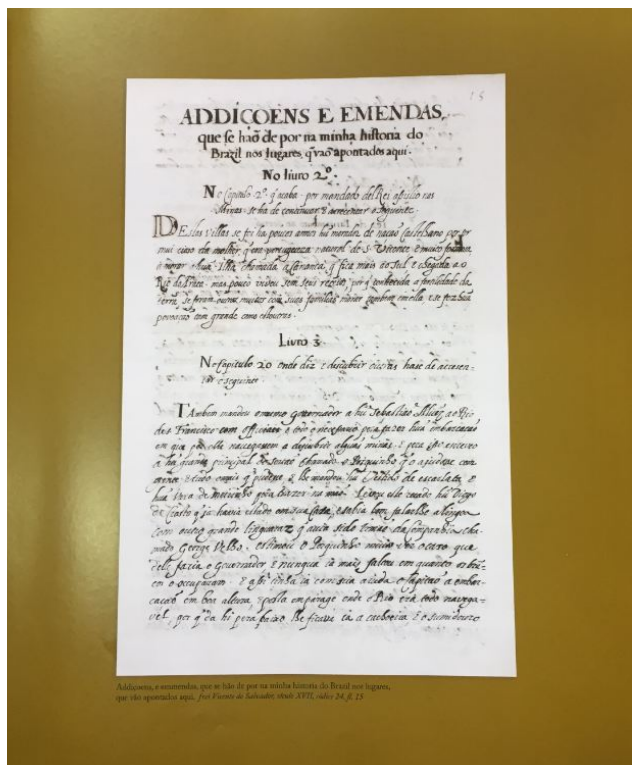 15
ADDIÇOENS E EMENDAS,
que se haõ de por na minha historia do
Brazil nos lugares, q̃ vaõ apontados aqui.
No livro 2º.
No Capitulo 2º. q̃ acaba por mandado del Rei
Minas se ha de continuar e acrecentar o seguinte.
Destas Villas se foi ha poucos annos hũ morador de nacaõ Castelhano
da molher, q̃ era portugueza natural de S. Vicente e
a morar a hũa Ilha chamada a Cananea, q̃ fica mais ao Sul e chegada ao
Rio da Prata. mas pouco viveo sem seus porq̃ conhecida a fertilidade da
terra, se foram outros muitos com suas familias morar tambem em ella, e se fez hũa
povoaçaõ tem grande como
Livro 3
No Capitulo 20 onde diz e descubrir outras hase de acrecen-
tar o seguinte
Tambem mandou o mesmo governador a hũ Sebastiaõ Alvez ao Rio
de S. Francisco com Officiaes e todo o necesario pera fazer hũa embarcacaõ
em que por elle navegassem a descubrir algũas minas. e pera isso escreveo
a hũ grande principal chamado o Porquinho q̃ o ajudase com
e tudo o mais q̃ pudese e lhe mandou hũ vestido de escarlata e
hũa Vara de Meirinho pera trazer na maõ. Levou elle recado hũ Diogo
de Crasto q̃ ja havia estado em sua casa, e sabia bem falar lhe a lingoa
com outro grande lingoaraz q̃ avia sido Irmaõ da Companhia cha-
mado George Velho. estimou o Porquinho muito que
delle fazia o Governador e nunqua ia mais faltou em quanto os bri-
cos o occuparam. E asi tinha ia com sua aiuda o Capitaõ a embar-
cacaõ em boa altura, e posta em parage onde o Rio era todo navega-
vel, por q̃ da hi pera baixo lhe ficava ia a cachoeira e o sumidouro
Addiçoens, e enmmendas, que se hão de por na minha historia do Brazil nos lugares,
que vão apontados aqui, frei Vicente do Salvador, século XVII, códice 24, fl. 15